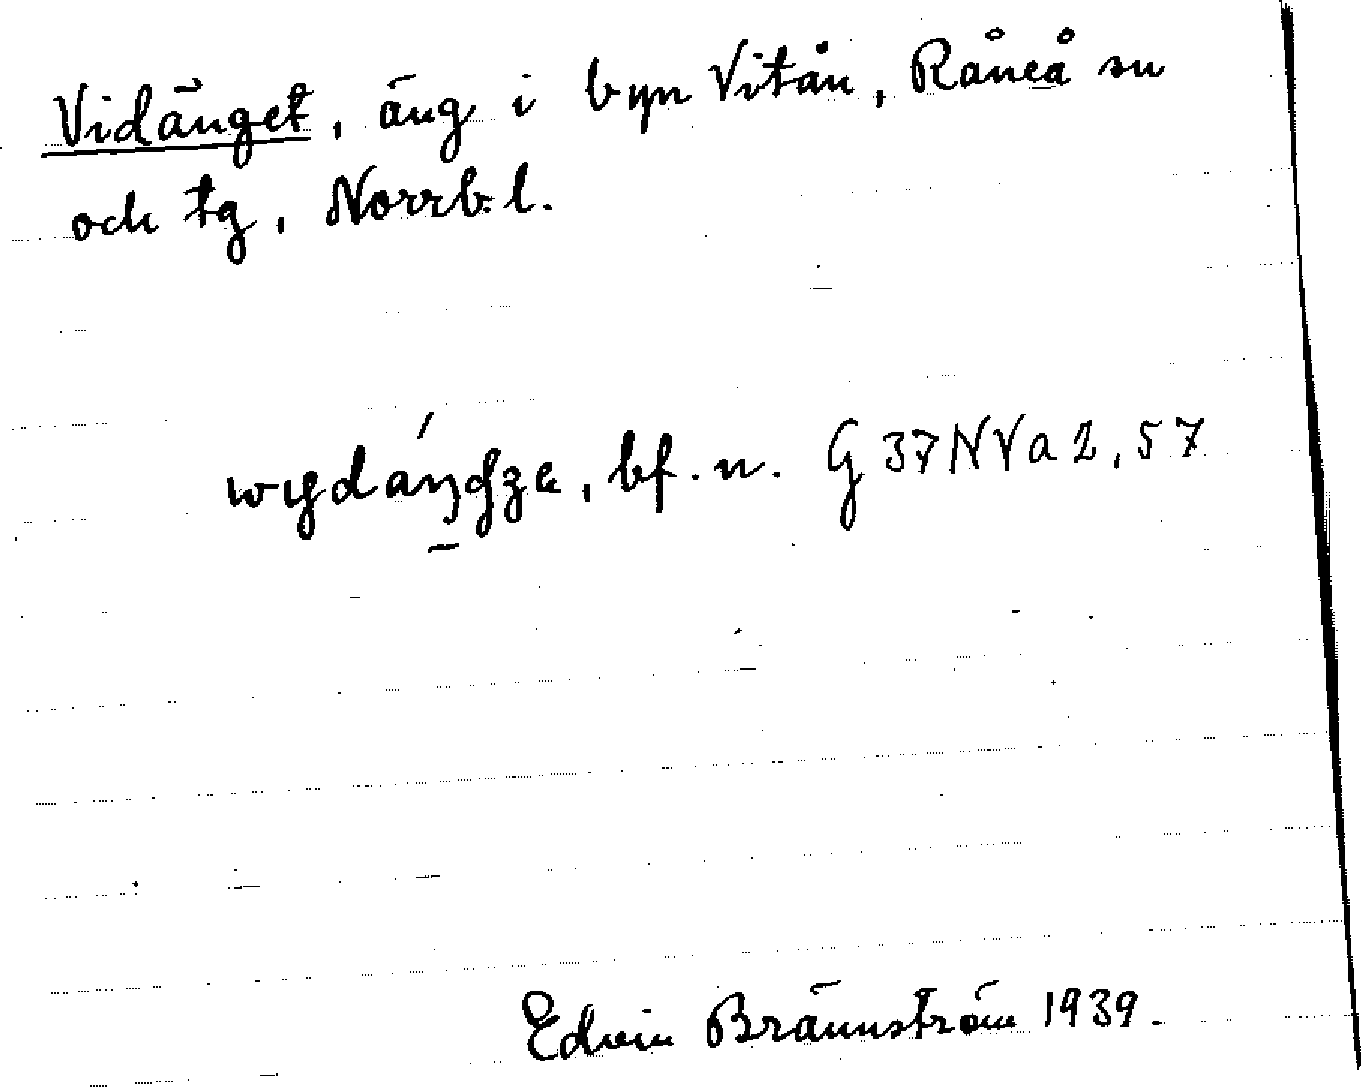 Vidänget, äng i byn Vitån, Råneå sn
och tg, Norrb. l.
bf. n. G 37 N V a 2, 57
Edvin Brännström 1939.